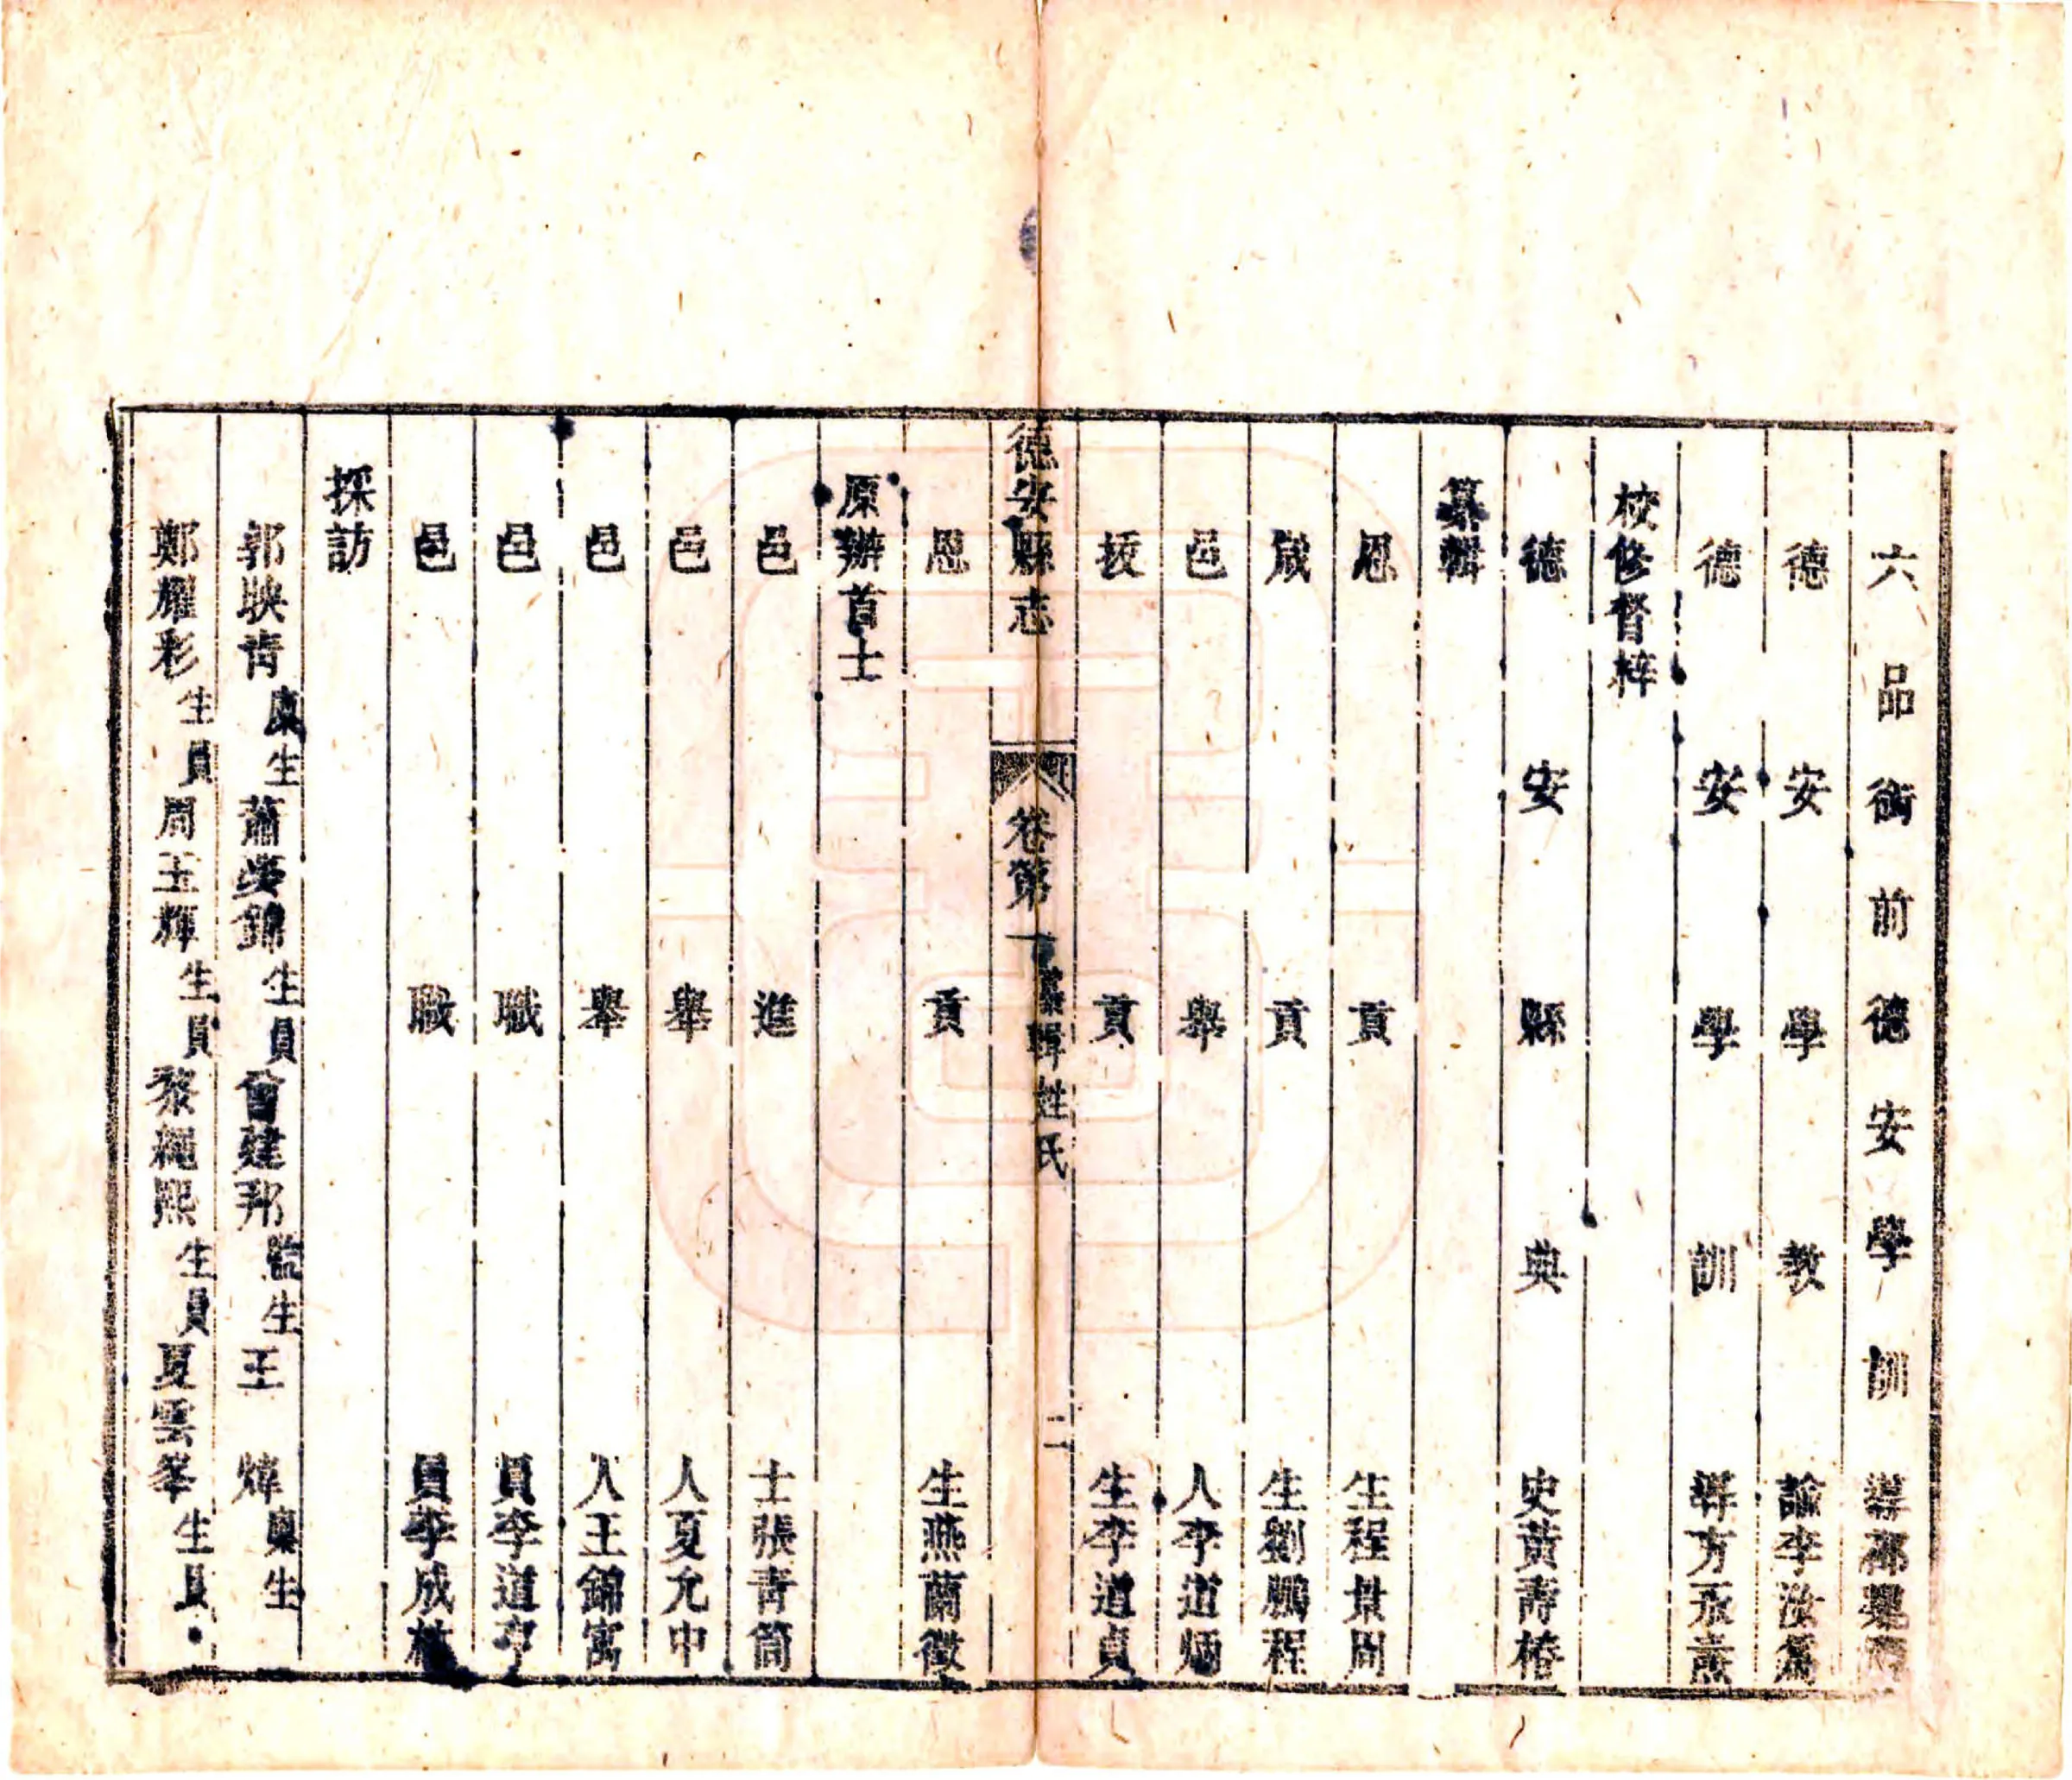 六品銜前德安學訓導
德安學教諭李汝為
德安學訓導方永燾
校修督梓
德安縣典史黃壽椿
纂輯
恩貢生程景周
歲貢生劉鵬程
邑舉人李道炳
拔貢生李道貞
德安縣志 卷第一 纂輯姓氏 二
恩貢生燕蘭徵
原辦首士
邑進士張青筒
邑舉人夏允中
邑舉人王錦寓
邑職員李道亨
邑職員李成
採訪
郭映青廩生 蕭榮錦生員 曾建邦監生 王煒廩生
鄭耀彩生員 周玉輝生員 黎繩熙生員 夏雲峯生員